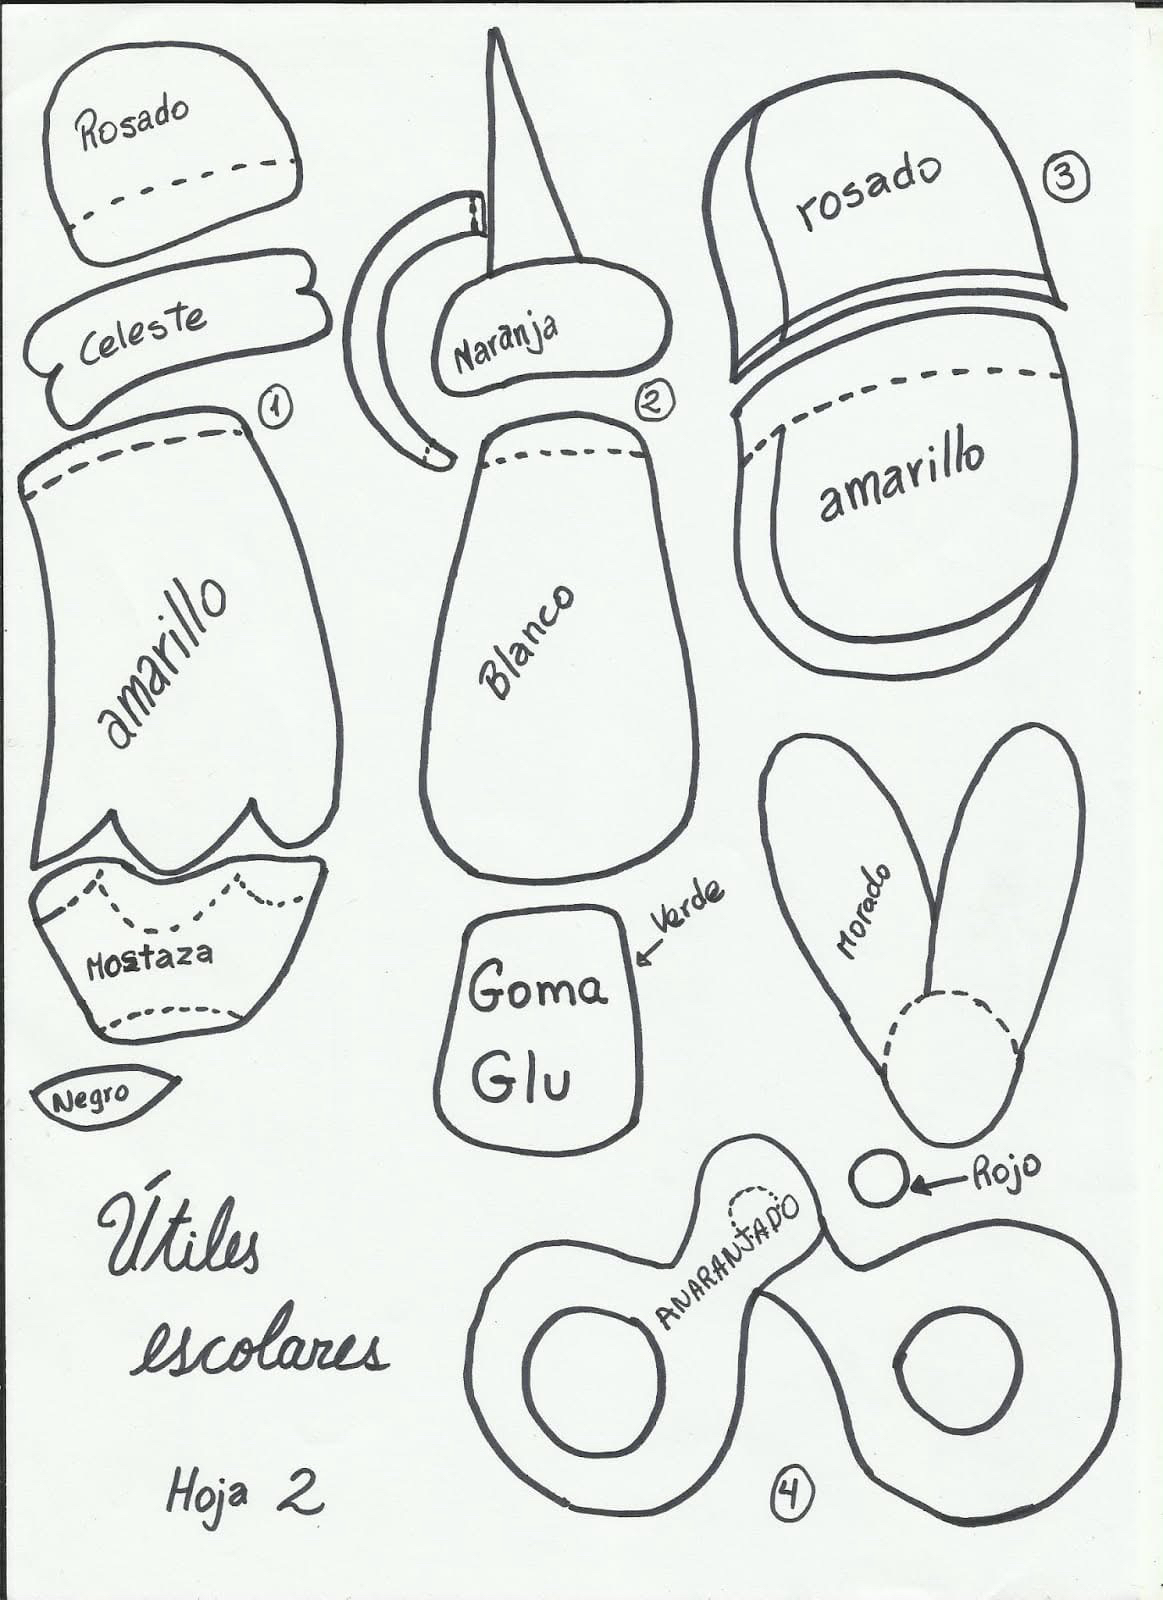 Rosado
Celeste
1
amarillo
Mostaza
Negro
Naranja
2
Blanco
Verde
Goma
Glu
rosado
3
amarillo
Morado
Rojo
ANARANJADO
4
Útiles
escolares
Hoja 2